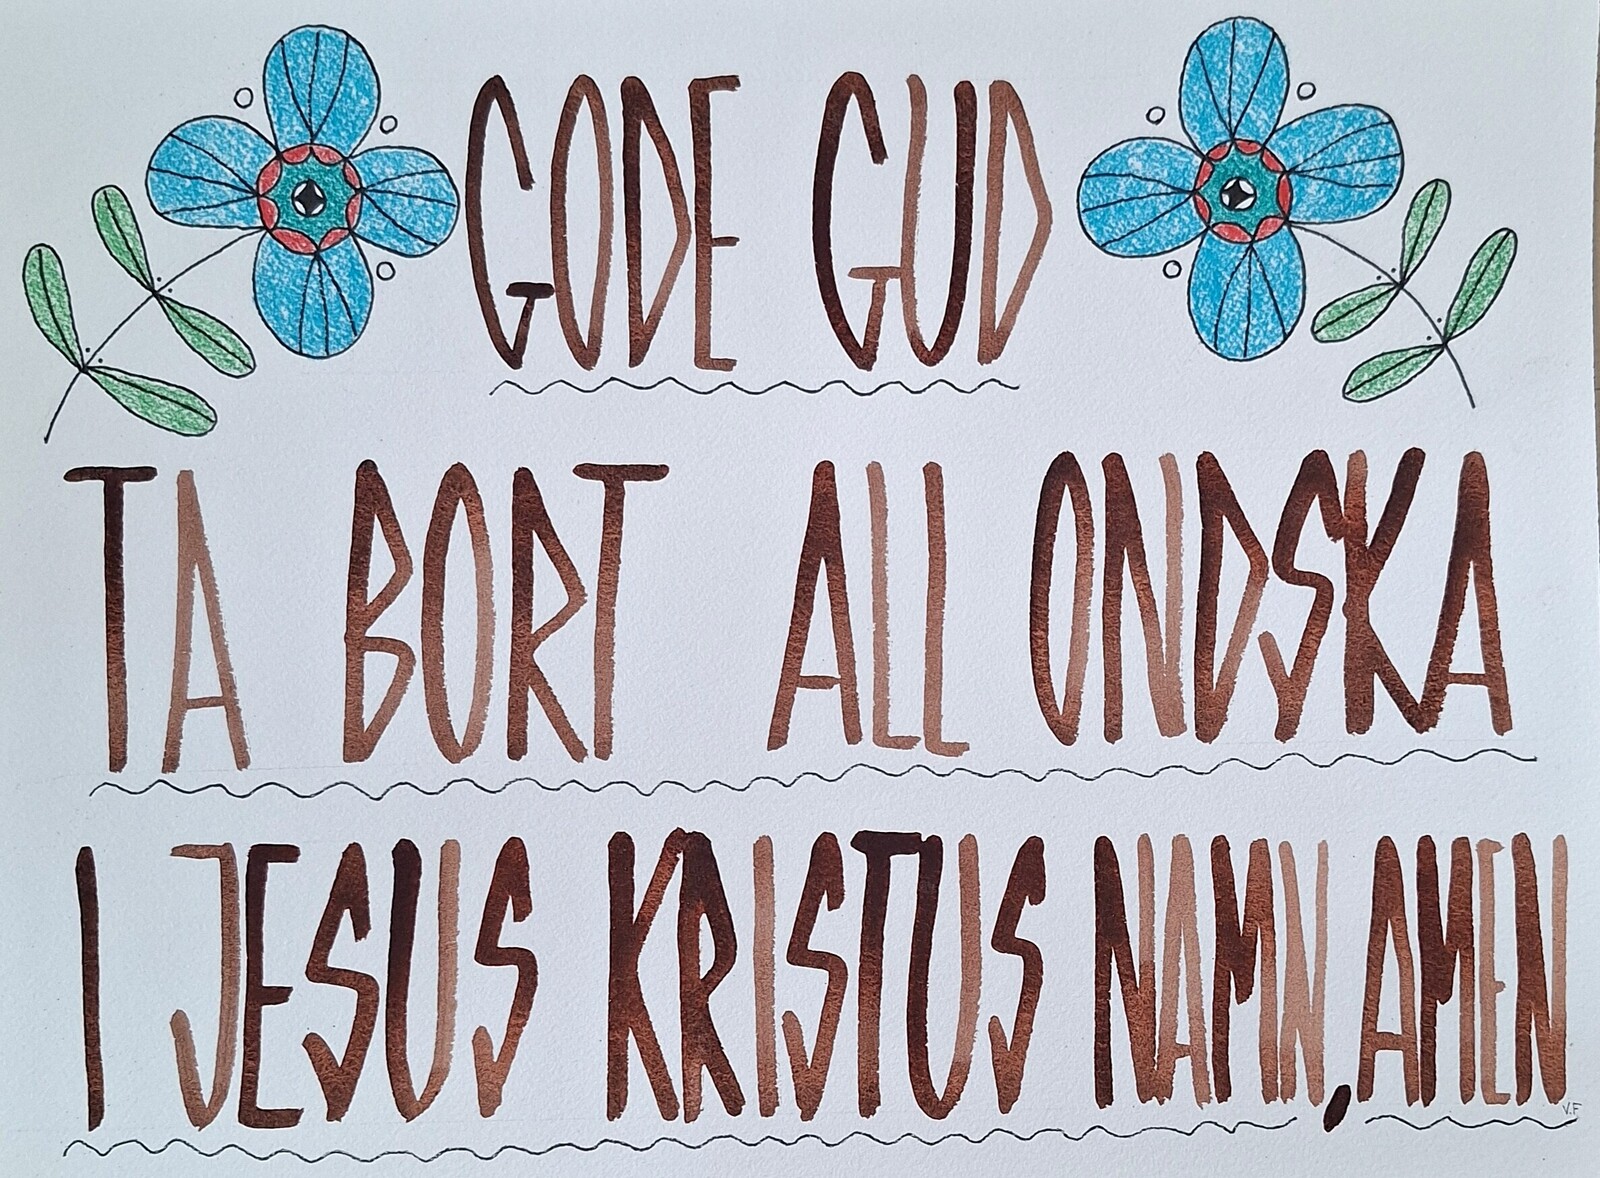 GODE GUD
TA BORT ALL ONDSKA
I JESUS KRISTUS NAMN, AMEN
V.F